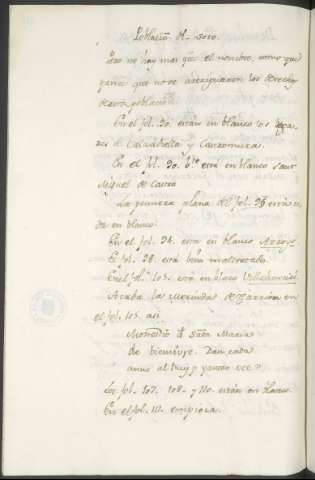 Poblacion de soto.
no hay mas que el nombre, como que
parece que no se averiguaron los derechos
de esta poblacion
En el fol. 30, están en blanco los lugares
res de Calzadiella y
En el fol. 30. bto está en blanco Sant
Miguel de
La primera plana del fol. 36 está toda
da en blanco.
En el fol. 34. está en blanco Arroyo
El fol. 38. está bien maltratado.
En el fol. 105. está en blanco Villafruel
Acaba la merindad de Carrion en
el fol. 105. asi
Monesterio de Santa Maria
de bienvivre. Dan cada
anno al Rey por yantar ccc?
Los fol. 107. 108. y 110. están en blanco
En el fol. 111. empieza.